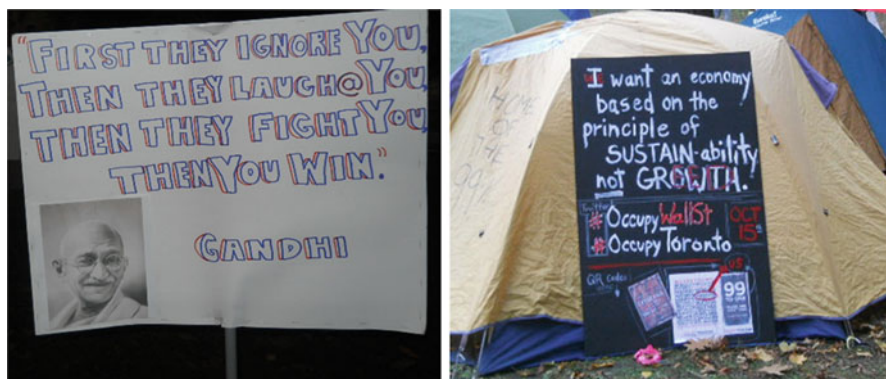 "FIRST THEY IGNORE YOU,
THEN THEY LAUGH@YOU,
THEN THEY FIGHT YOU,
THEN YOU WIN."
GANDHI
HOME
OF
THE
99%
I want an economy
based on the
principle of
SUSTAIN-ability
not GROWTH.
Twitter
# Occupy WallSt
# Occupy Toronto
OCT
15th
QR Codes
US
99